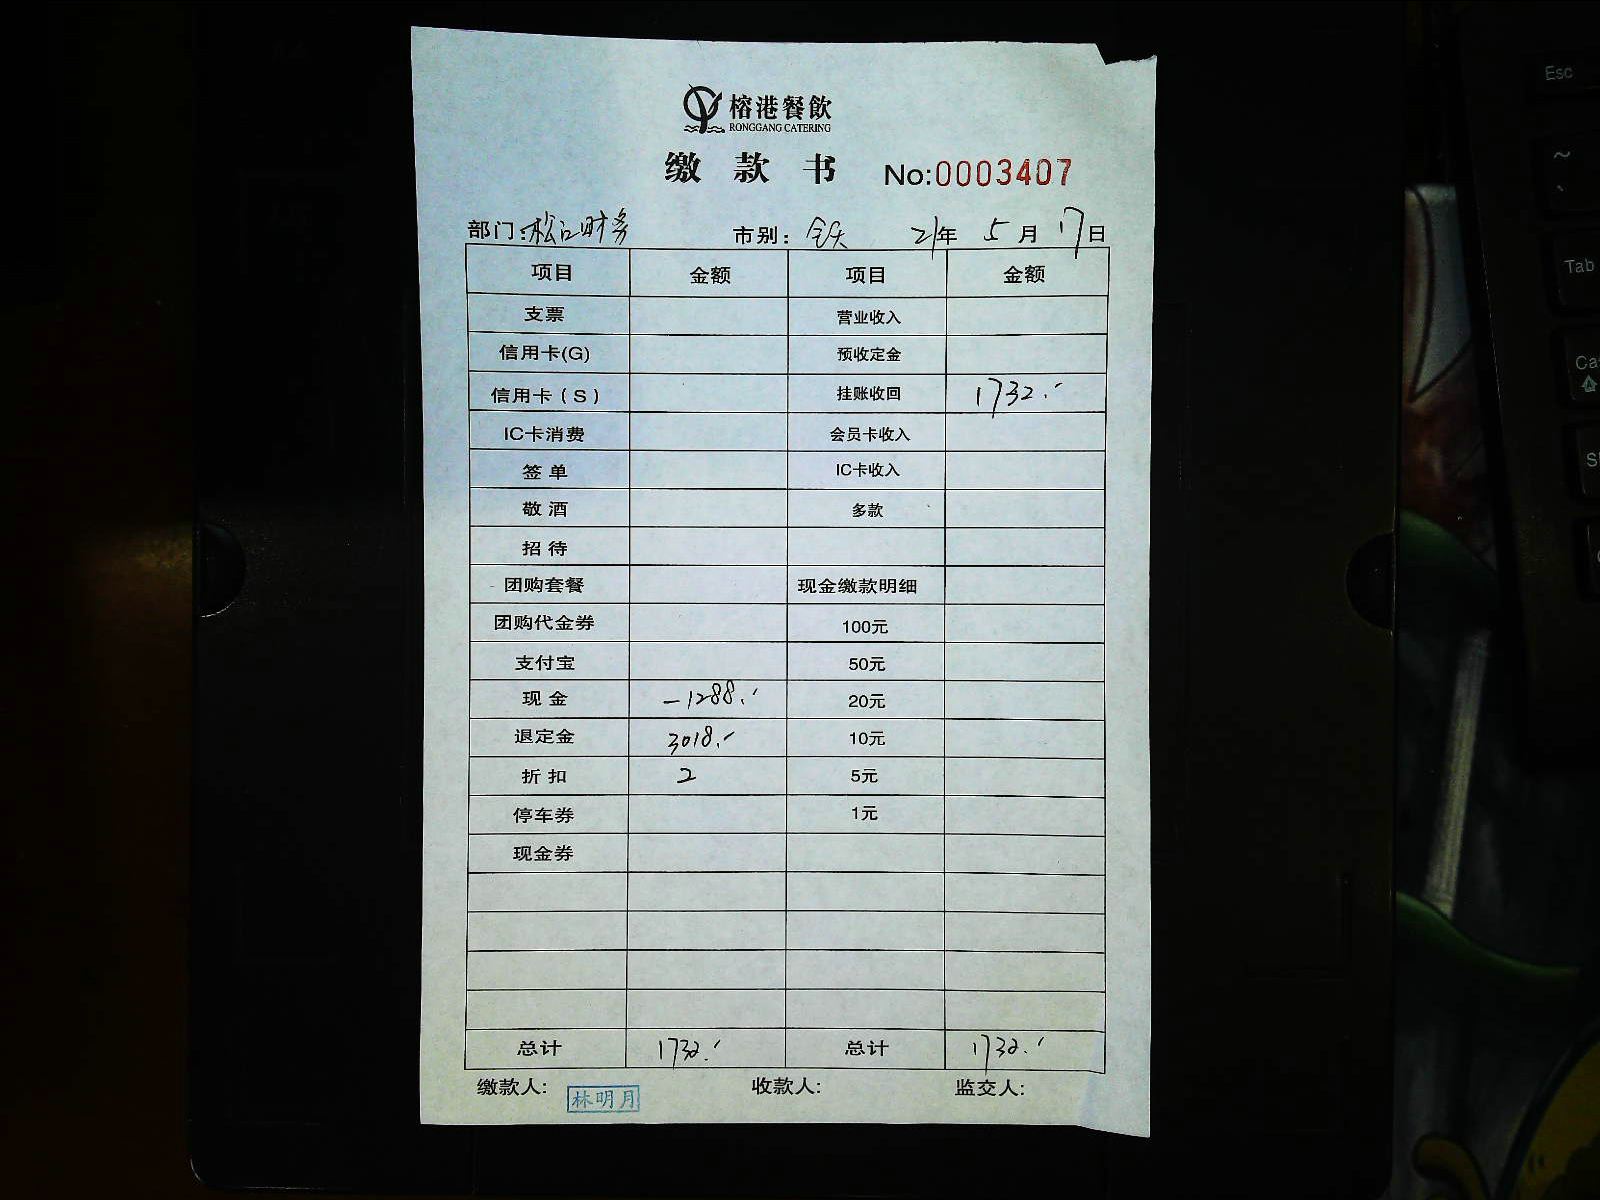 榕港餐飲
RONGGANG CATERING
缴款书 No:0003407
部门:松江财务 市别: 全天 21年 5月 17日
项目 金额 项目 金额
支票 营业收入
信用卡(G) 预收定金
信用卡(S) 挂账收回 1732.-
IC卡消费 会员卡收入
签单 IC卡收入
敬酒 多款
招待
团购套餐 现金缴款明细
团购代金券 100元
支付宝 50元
现金 -1288.- 20元
退定金 3018.- 10元
折扣 2 5元
停车券 1元
现金券
总计 1732.- 总计 1732.-
缴款人: 林明月 收款人: 监交人:
Esc
~
Tab